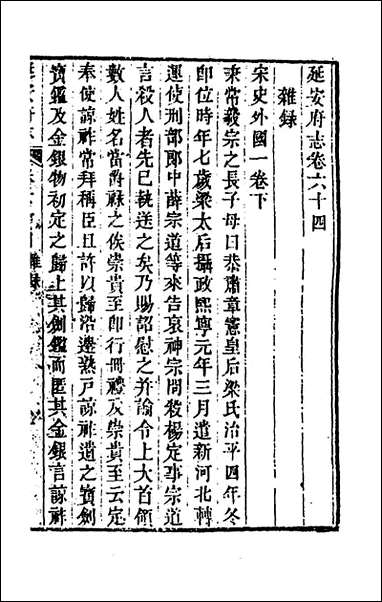 延安府志卷六十四
雜録
宋史外國一卷下
秉常毅宗之長子母曰恭肅章憲皇后梁氏治平四年冬
即位時年七歲梁太后攝政熙寧元年三月遣新河北轉
運使刑部郎中薛宗道等來告哀神宗問殺楊定事宗道
言殺人者先已執送之矣乃賜詔慰之并諭令上大首領
數人姓名當爵祿之俟崇貴至即行冊禮及崇貴至云定
奉使諒祚常拜稱臣且許以歸沿邊熟戸諒祚遺之寳劍
寳鑑及金銀物初定之歸上其劍鑑而匿其金銀言諒祚